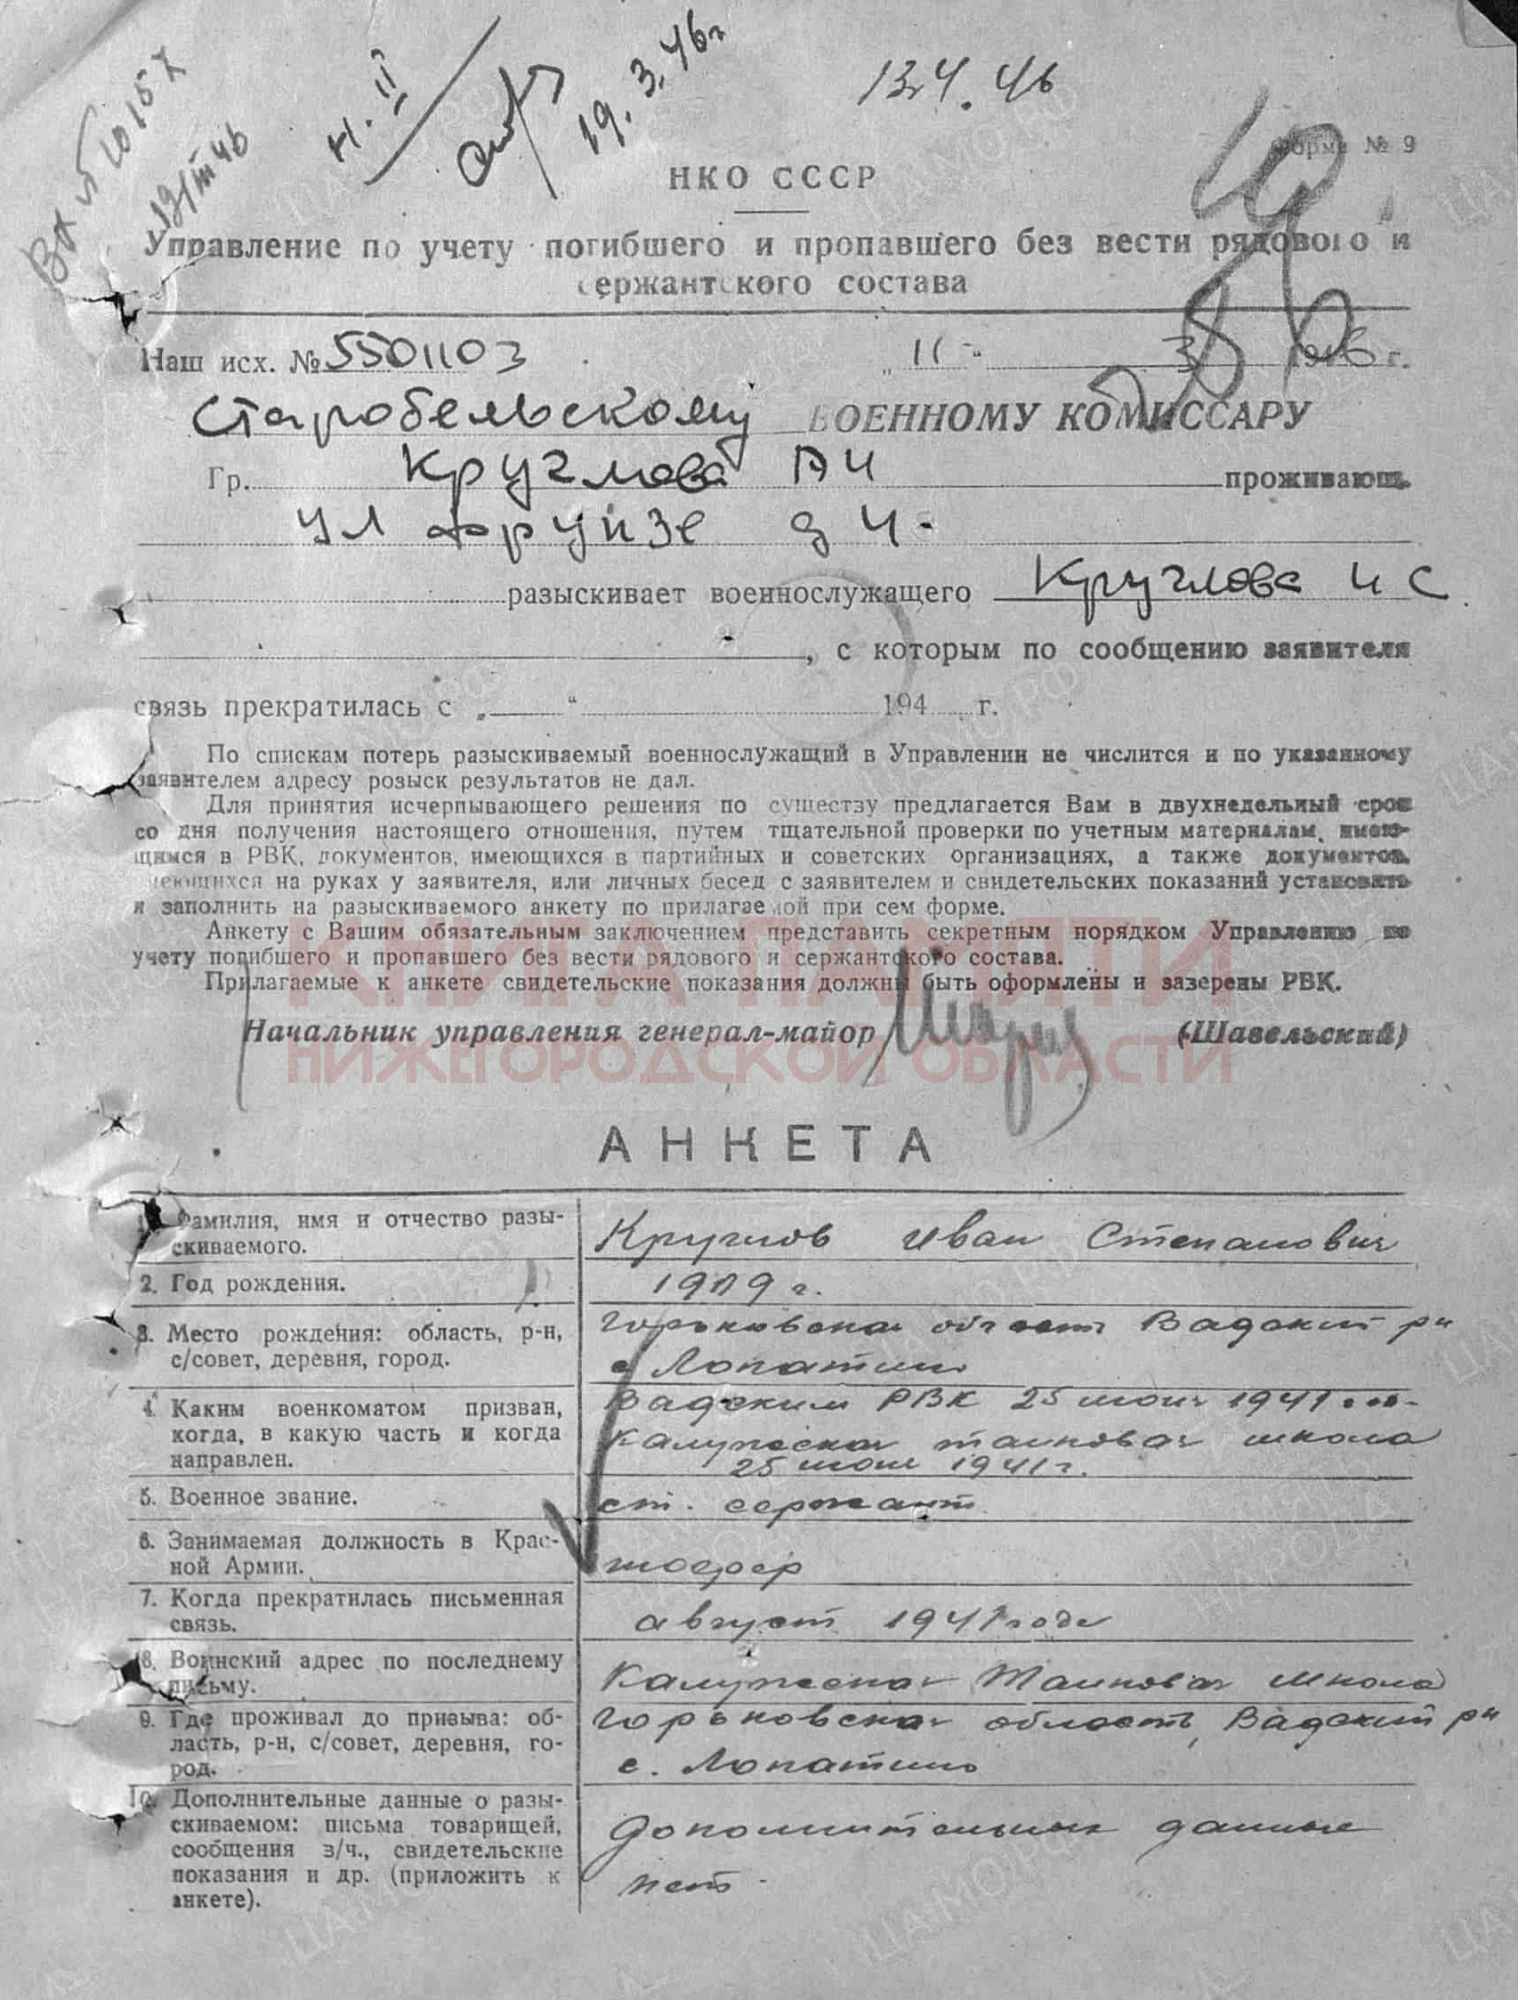 Вх № 10157
н. II
19. 3. 46г
13.4.46
Форма № 9
НКО СССР
Управление по учету погибшего и пропавшего без вести рядового и
сержантского состава
Наш исх. № 5501103 „11" 3 1946 г.
Старобельскому ВОЕННОМУ КОМИССАРУ
Гр. Круглова А И проживающ.
ул Фрунзе д 4.
разыскивает военнослужащего Круглова И С
, с которым по сообщению заявителя
связь прекратилась с „ “ 194 г.
По спискам потерь разыскиваемый военнослужащий в Управлении не числится и по указанному
заявителем адресу розыск результатов не дал.
Для принятия исчерпывающего решения по существу предлагается Вам в двухнедельный срок
со дня получения настоящего отношения, путем тщательной проверки по учетным материалам, имею-
щимся в РВК, документов, имеющихся в партийных и советских организациях, а также документов,
имеющихся на руках у заявителя, или личных бесед с заявителем и свидетельских показаний установить
и заполнить на разыскиваемого анкету по прилагаемой при сем форме.
Анкету с Вашим обязательным заключением представить секретным порядком Управлению по
учету погибшего и пропавшего без вести рядового и сержантского состава.
Прилагаемые к анкете свидетельские показания должны быть оформлены и заверены РВК.
КНИГА ПАМЯТИ
Начальник управления генерал-майор (Шавельский)
НИЖЕГОРОДСКОЙ ОБЛАСТИ
АНКЕТА
1. Фамилия, имя и отчество разы-
скиваемого.
Круглов Иван Степанович
2. Год рождения.
1909 г.
3. Место рождения: область, р-н,
с/совет, деревня, город.
Горьковская область Вадский рн
с Лопатино
4. Каким военкоматом призван,
когда, в какую часть и когда
направлен.
Вадским РВК 25 июня 1941
Калужская танковая школа
25 июня 1941 г.
5. Военное звание.
ст. сержант
6. Занимаемая должность в Крас-
ной Армии.
шофер
7. Когда прекратилась письменная
связь.
август 1941 года
8. Воинский адрес по последнему
письму.
Калужская Танковая школа
9. Где проживал до призыва: об-
ласть, р-н, с/совет, деревня, го-
род.
Горьковская область, Вадский рн
с. Лопатино
10. Дополнительные данные о разы-
скиваемом: письма товарищей,
сообщения з/ч., свидетельские
показания и др. (приложить к
анкете).
Дополнительных данных
нет.